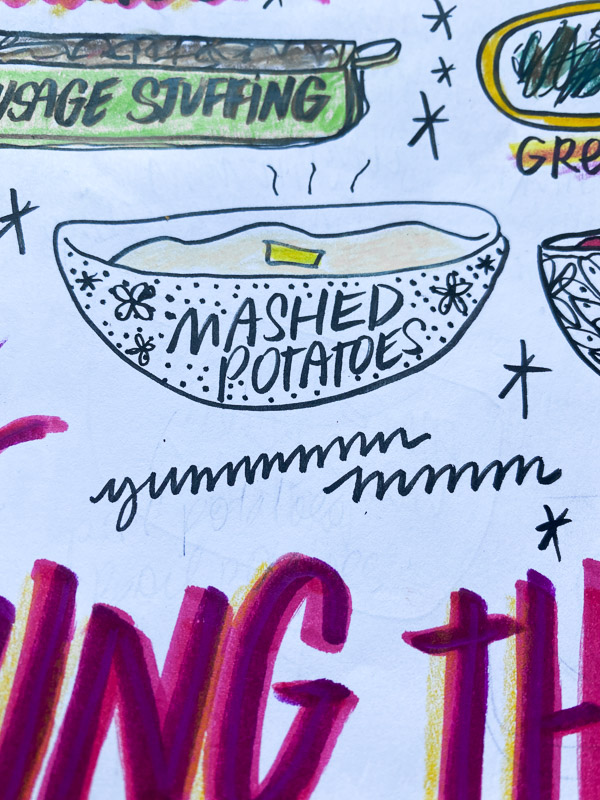 USAGE STUFFING
GRE
MASHED
POTATOES
yummmmm
mmmm
ING TH